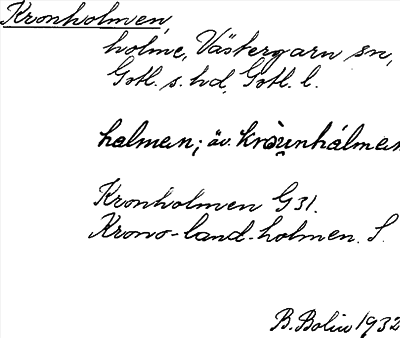 Kronholmen,
holme, Västergarn sn,
Gotl. s. hd, Gotl. l.
halmen; äv. kròu̯nhálmen
Kronholmen G 31.
Krono-land-holmen. S.
B. Bolin 1932